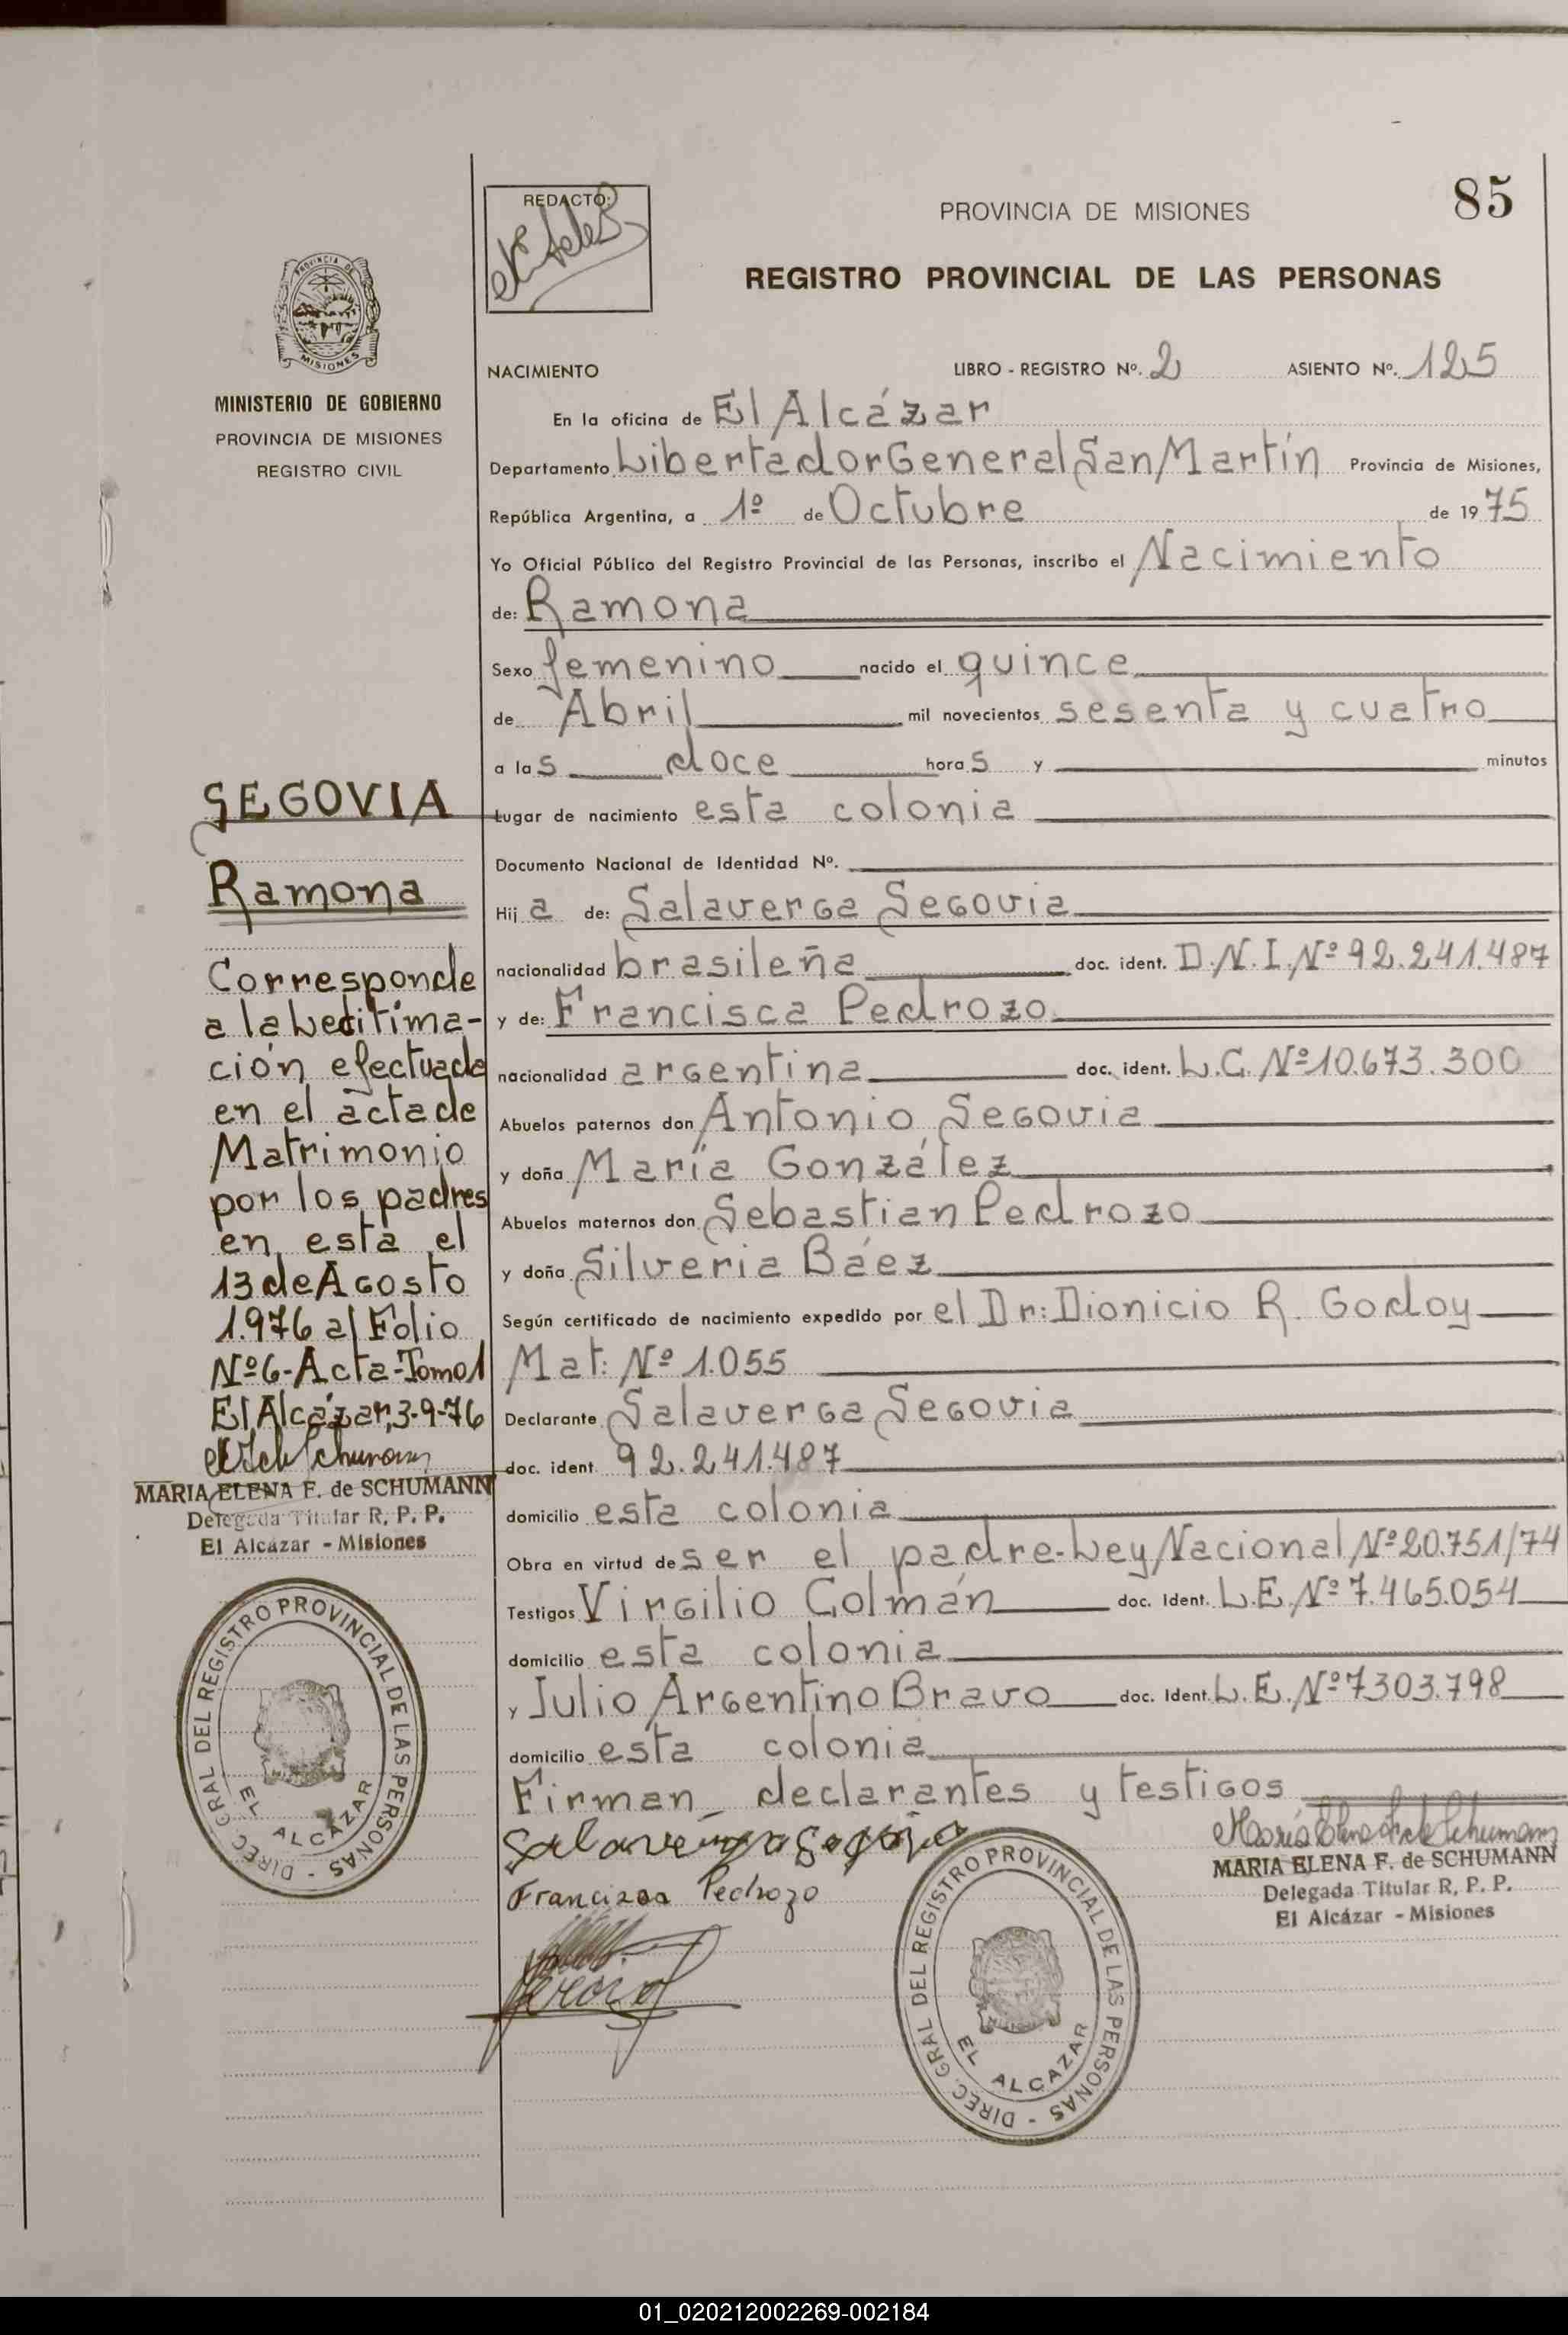 85
REDACTO:
PROVINCIA DE MISIONES
REGISTRO PROVINCIAL DE LAS PERSONAS
PROVINCIA DE
MISIONES
MINISTERIO DE GOBIERNO
PROVINCIA DE MISIONES
REGISTRO CIVIL
NACIMIENTO LIBRO - REGISTRO Nº. 2 ASIENTO Nº. 125
En la oficina de El Alcázar
Departamento Libertador General San Martín Provincia de Misiones,
República Argentina, a 1º de Octubre de 1975
Yo Oficial Público del Registro Provincial de las Personas, inscribo el Nacimiento
de: Ramona
Sexo femenino nacido el quince
de Abril mil novecientos sesenta y cuatro
a las doce horas y minutos
Lugar de nacimiento esta colonia
Documento Nacional de Identidad Nº.
Hija de: Salaverga Segovia
nacionalidad brasileña doc. ident. D.N.I. Nº 92.241.487
y de: Francisca Pedrozo
nacionalidad argentina doc. ident. L.C. Nº 10.673.300
Abuelos paternos don Antonio Segovia
y doña María González
Abuelos maternos don Sebastian Pedrozo
y doña Silveria Báez
Según certificado de nacimiento expedido por el Dr: Dionicio R. Godoy
Mat: Nº 1.055
Declarante Salaverga Segovia
doc. ident. 92.241.487
domicilio esta colonia
Obra en virtud de ser el padre-Ley Nacional Nº 20.751/74
Testigos Virgilio Colmán doc. Ident. L.E. Nº 7.465.054
domicilio esta colonia
y Julio Argentino Bravo doc. Ident. L.E. Nº 7303.798
domicilio esta colonia
Firman declarantes y testigos
Francisca Pedrozo
María Elena F. de Schumann
MARIA ELENA F. de SCHUMANN
Delegada Titular R. P. P.
El Alcázar - Misiones
DIREC. GRAL DEL REGISTRO PROVINCIAL DE LAS PERSONAS -
EL ALCAZAR
SEGOVIA
Ramona
Corresponde
a la Legitima-
ción efectuada
en el acta de
Matrimonio
por los padres
en esta el
13 de Agosto
1.976 al Folio
Nº 6-Acta-Tomo 1
El Alcázar, 3-9-76
MARIA ELENA F. de SCHUMANN
Delegada Titular R. P. P.
El Alcázar - Misiones
DIREC. GRAL DEL REGISTRO PROVINCIAL DE LAS PERSONAS -
EL ALCAZAR
01_020212002269-002184